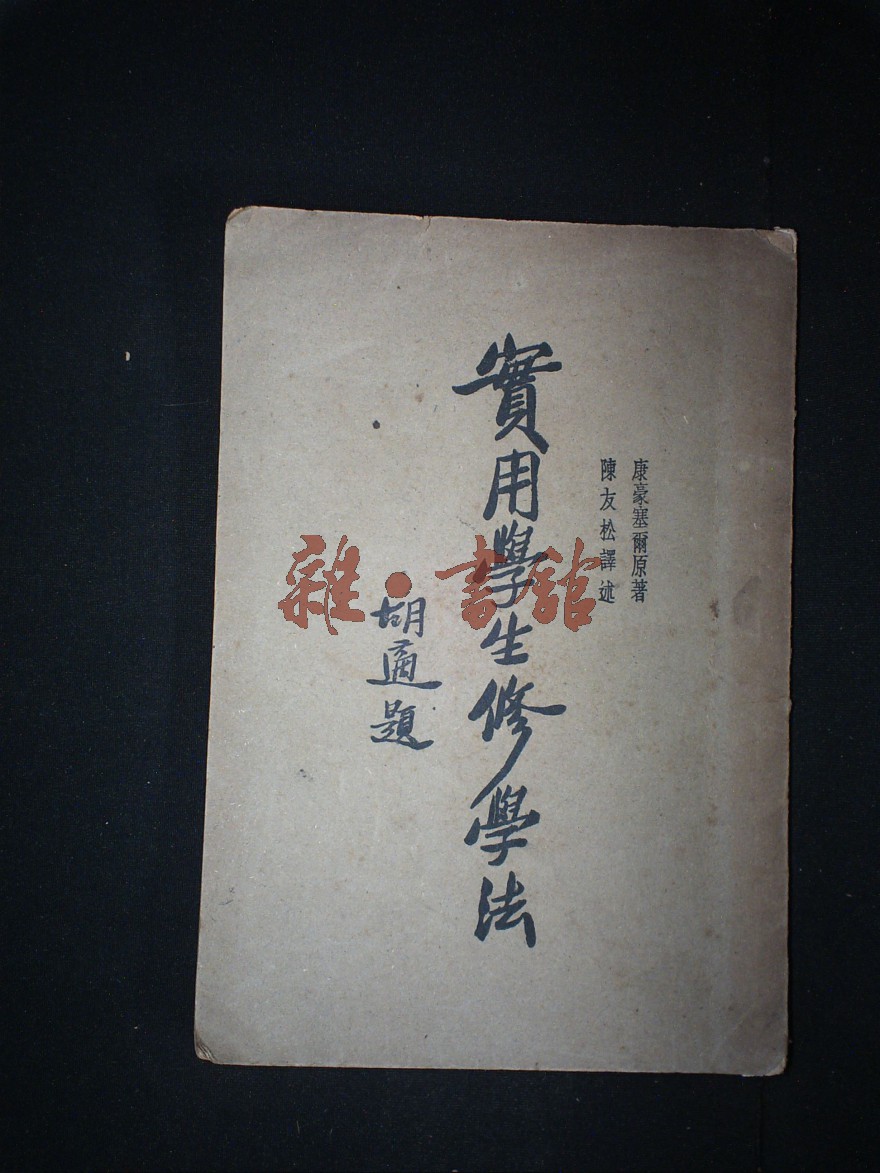 康豪塞爾原著
陳友松譯述
實用學生修學法
胡適題
雜·書館